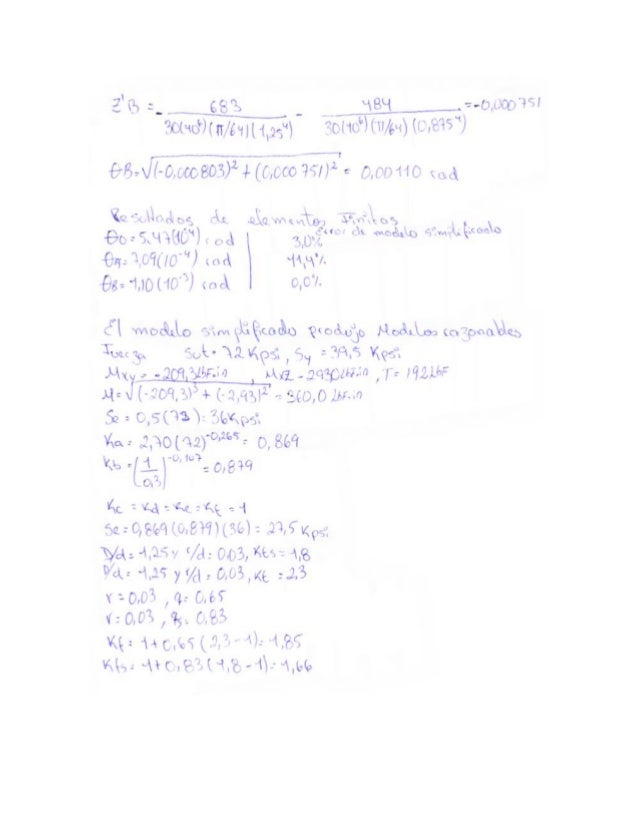 Z'B = - 683 / 30(10⁶)(π/64)(1,25⁴) - 484 / 30(10⁶)(π/64)(0,875⁴) = -0,000751
θB = √(-0,000803)² + (0,000751)² = 0,00110 rad
Resultados de elementos Finitos
Error de modelo simplificado
θO = 5,47(10⁻⁴) rad | 3,0%
θA = 7,09(10⁻⁴) rad | 11,4%
θB = 1,10(10⁻³) rad | 0,0%
El modelo simplificado produjo Modelos razonables
Fuerza Sut = 72 Kpsi, Sy = 39,5 Kpsi
Mxy = -209,3 Lbf.in, MxZ = 293,0 Lbf.in, T = 192 Lbf
M = √(-209,3)² + (-2,93)² = 360,0 Lbf.in
Se = 0,5(72) = 36 Kpsi
Ka = 2,70(72)^-0,265 = 0,869
Kb = (1/0,3)^-0,107 = 0,879
Kc = Kd = Ke = Kf = 1
Se = 0,869(0,879)(36) = 27,5 Kpsi
D/d = 1,25 y r/d = 0,03, Kts = 1,8
D/d = 1,25 y r/d = 0,03, Kt = 2,3
r = 0,03, q = 0,65
r = 0,03, qs = 0,83
Kf = 1 + 0,65(2,3-1) = 1,85
Kfs = 1 + 0,83(1,8-1) = 1,66